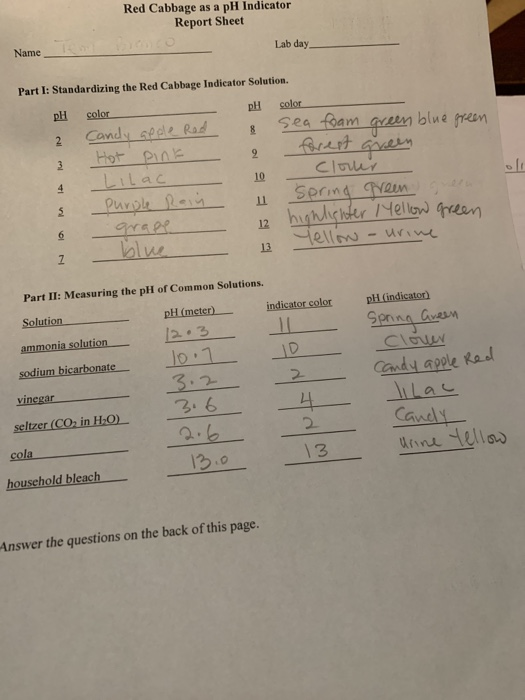 Red Cabbage as a pH Indicator
Report Sheet
Name
Lab day
Part I: Standardizing the Red Cabbage Indicator Solution.
pH color pH color
2 Candy apple Red 8 Sea foam green blue green
3 Hot pink 9 forest green
4 Lilac 10 Clover
5 Purple Rain 11 Spring green
6 grape 12 highlighter / Yellow green
7 blue 13 Yellow - urine
Part II: Measuring the pH of Common Solutions.
Solution pH (meter) indicator color pH (indicator)
ammonia solution 12.3 11 Spring Green
sodium bicarbonate 10.7 10 Clover
vinegar 3.2 2 Candy apple Red
seltzer (CO₂ in H₂O) 3.6 4 lilac
cola 2.6 2 Candy
household bleach 13.0 13 urine Yellow
Answer the questions on the back of this page.